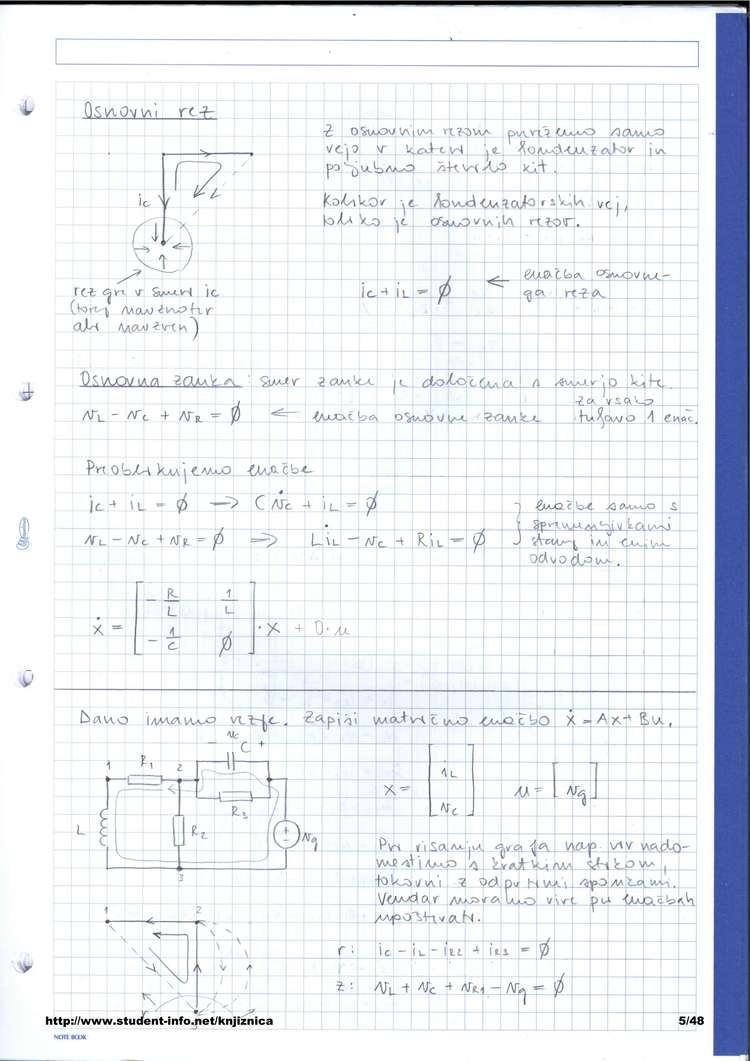 Osnovni rez
Z osnovnim rezom prerežemo samo
vejo v kateri je kondenzator in
poljubno število kit.
Kolikor je kondenzatorskih vej,
toliko je osnovnih rezov.
ic
rez gre v smeri ic
(torej navznoter
ali navzven)
ic + iL = ∅ ← enačba osnovne-
ga reza
Osnovna zanka: smer zanke je določena s smerjo kite.
za vsako
vL - vC + vR = ∅ ← enačba osnovne zanke tuljavo 1 enač.
Preoblikujemo enačbe
ic + iL = ∅ → C v̇c + iL = ∅
vL - vC + vR = ∅ ⇒ L i̇L - vc + R iL = ∅
enačbe samo s
spremenljivkami
stanj in enim
odvodom.
ẋ = [ -R/L 1/L ; -1/C ∅ ] · x + 0·u
Dano imamo vezje. Zapiši matrično enačbo ẋ = Ax + Bu.
vc
- C +
1 R1 2
R3
L R2 vg
3
x = [ iL vc ] u = [ vg ]
Pri risanju grafa nap. vir nado-
mestimo s kratkim stikom,
tokovni z odprtimi sponkami.
Vendar moramo vire pri enačbah
upoštevati.
1 2
r: ic - iL - iR2 + iR3 = ∅
z: vL + vc + vR1 - vg = ∅
http://www.student-info.net/knjiznica
5/48
NOTE BOOK